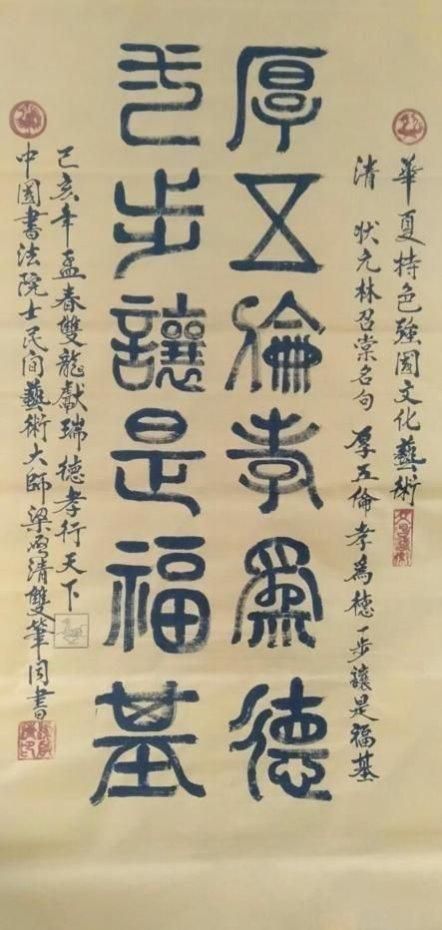 華夏特色強國文化藝術
清 狀元林召棠名句 厚五倫孝為德一步讓是福基
厚五倫孝為德
弌步讓是福基
己亥年孟春雙龍獻瑞德孝行天下
中國書法院士民间藝術大師梁啓清雙筆同書